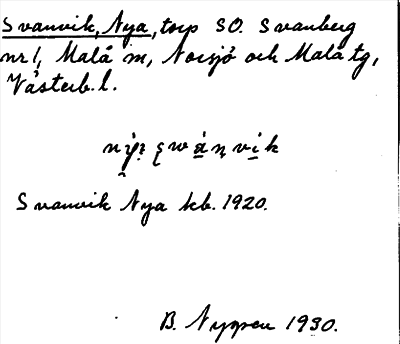 Svanvik, Nya, torp SO. Svanberg
nr 1, Malå sn, Norsjö och Malå tg,
Västerb. l.
Svanvik Nya kb. 1920.
B. Nygren 1930.